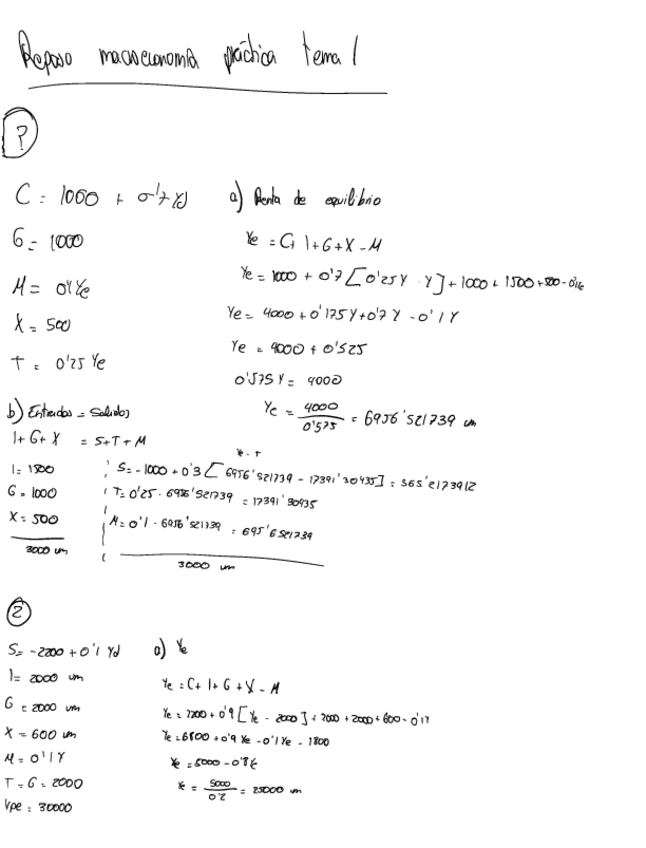 Repaso macroeconomía práctica tema 1
?
C = 1000 + 0'7 Yd
G = 1000
M = 0'1 Ye
X = 500
T = 0'25 Ye
a) Renta de equilibrio
Ye = C + I + G + X - M
Ye = 1000 + 0'7 [0'25Y · Y] + 1000 + 1500 + 500 - 0'1Ye
Ye = 4000 + 0'175Y + 0'7 Y - 0'1 Y
Ye = 4000 + 0'525
0'575 Y = 4000
Ye = 4000 / 0'575 = 6956'521739 um
b) Entradas = Salidas
I + G + X = S + T + M
I = 1500
G = 1000
X = 500
3000 um
Ye - T
S = -1000 + 0'3 [6956'521739 - 17391'30435] = 565'2173912
T = 0'25 · 6956'521739 = 17391'30435
M = 0'1 · 6956'521739 = 695'6521739
3000 um
2
S = -2200 + 0'1 Yd
I = 2000 um
G = 2000 um
X = 600 um
M = 0'1 Y
T = G = 2000
Ype = 30000
a) Ye
Ye = C + I + G + X - M
Ye = 2200 + 0'9 [Ye - 2000] + 2000 + 2000 + 600 - 0'1Y
Ye = 6800 + 0'9 Ye - 0'1 Ye - 1800
Ye = 5000 - 0'8Ye
Ye = 5000 / 0'2 = 25000 um